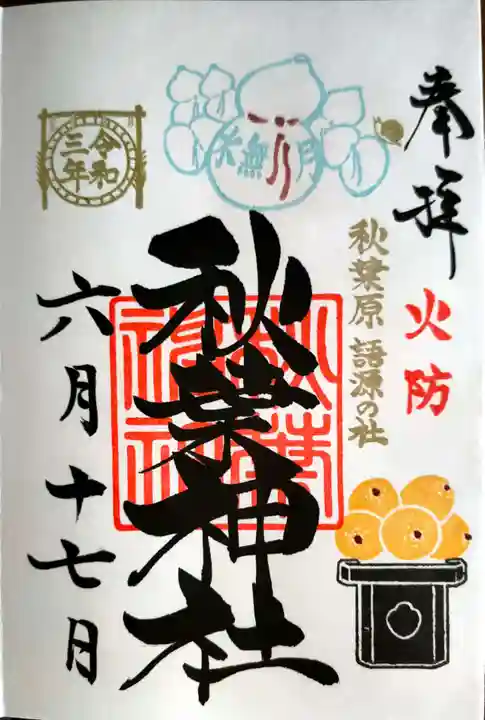 奉拝
火防
秋葉原 語源の社
水無月
秋葉神社
令和
三年
六月十七日